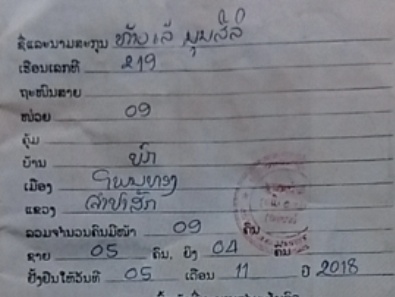 ຊື່ແລະນາມສະກຸນ ທ້າວ ເລ້ ບຸນສີລິ
ເຮືອນເລກທີ 219
ຖະໜົນສາຍ
ໜ່ວຍ 09
ຄຸ້ມ
ບ້ານ ພົກ
ເມືອງ ໂພນທອງ
ແຂວງ ຈຳປາສັກ
ລວມຈຳນວນຄົນມີໜ້າ 09 ຄົນ
ຊາຍ 05 ຄົນ, ຍິງ 04 ຄົນ
ຢັ້ງຢືນໃຫ້ວັນທີ 05 ເດືອນ 11 ປີ 2018